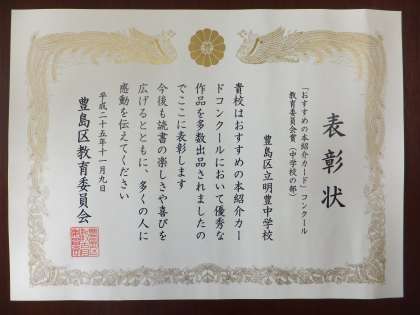 表彰状
「おすすめの本紹介カード」コンクール
教育委員会賞(中学校の部)
豊島区立明豊中学校
貴校はおすすめの本紹介カー
ドコンクールにおいて優秀な
作品を多数出品されましたの
でここに表彰します
今後も読書の楽しさや喜びを
広げるとともに、多くの人に
感動を伝えてください
平成二十五年十一月九日
豊島区教育委員会